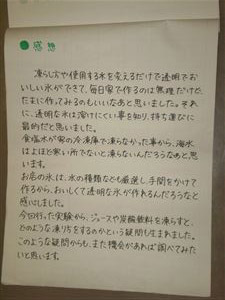 ●感想
凍らし方や使用する水を変えるだけで透明でお
いしい氷ができて、毎日家で作るのは無理だけど、
たまに作ってみるのもいいなあと思いました。それ
に、透明な氷は溶けにくい事を知り、持ち運びに
最適だと思いました。
食塩水が家の冷凍庫で凍らなかった事から、海水
はよほど寒い所でないと凍らないんだろうなあと思
います。
お店の氷は、水の種類なども厳選し、手間をかけて
作るから、おいしくて透明な氷が作れるんだろうなと
感心しました。
今回行った実験から、ジュースや炭酸飲料を凍らすと、
どのような凍り方をするのかという疑問も生まれました。
このような疑問からも、また機会があれば調べてみた
いと思います。